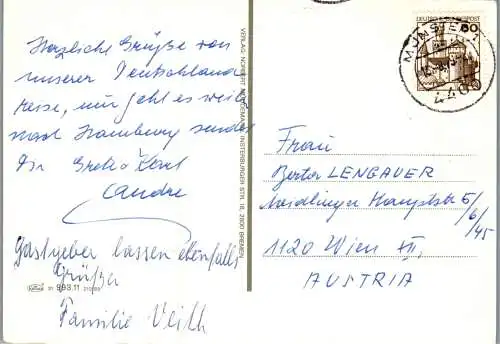 Herzliche Grüße von
unserer Deutschland
reise, nun geht es weiter
nach Hamburg sendet
Dir Grete + Karl
Gastgeber lassen ebenfalls
Grüße
Familie Veith
31 993.11
VERLAG NORBERT INSTERBURGER STR. 16, 2800 BREMEN
DEUTSCHE BUNDESPOST
60
MÜNSTER
4400
Frau
Berta LENGAUER
Meidlinger Hauptstr 5/
6/
45
1120 Wien XII,
AUSTRIA